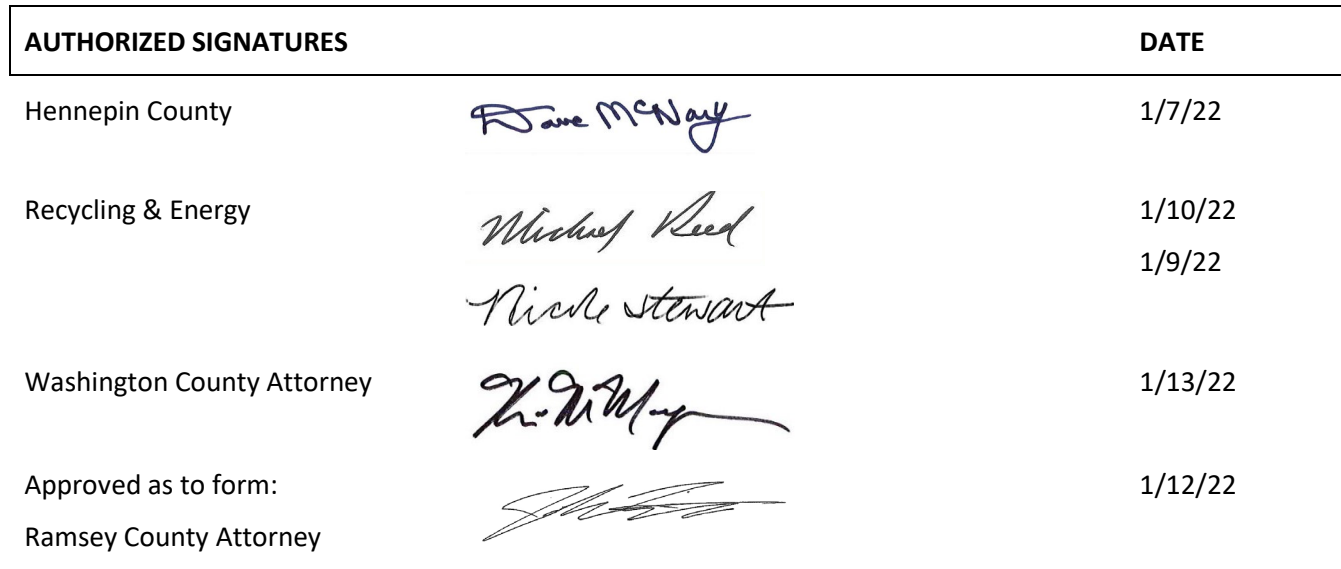 AUTHORIZED SIGNATURES DATE
Hennepin County Dave McNary 1/7/22
Recycling & Energy Michael Reed 1/10/22
1/9/22
Nicole Stewart
Washington County Attorney 1/13/22
Approved as to form: 1/12/22
Ramsey County Attorney